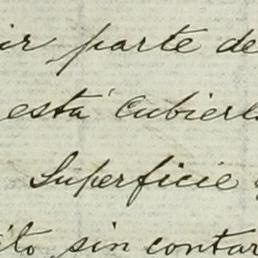 parte de
está cubier
Superficie
sin contar